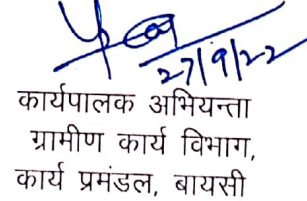 27/9/22
कार्यपालक अभियन्ता
ग्रामीण कार्य विभाग,
कार्य प्रमंडल, बायसी